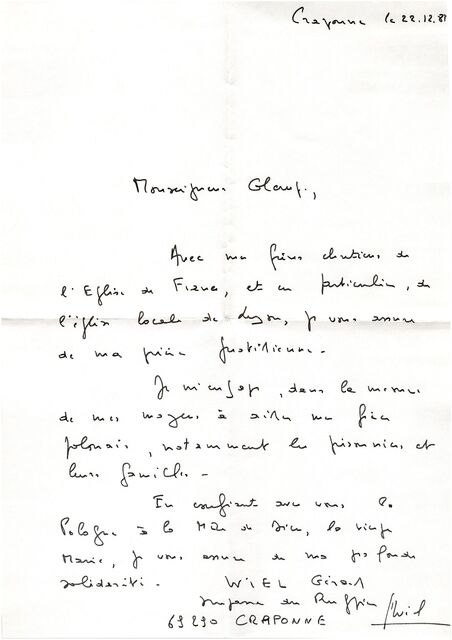 Craponne le 22.12.81
Monseigneur Glemp,
Avec mes frères chrétiens de
l'Eglise de France, et en particulier, de
l'église locale de Lyon, je vous assure
de ma prière quotidienne.
Je m'engage, dans la mesure
de mes moyens à aider mes frères
polonais, notamment les prisonniers et
leurs familles.
En confiant avec vous la
Pologne à la Mère de Dieu, la vierge
Marie, je vous assure de ma profonde
solidarité. WIEL Gérard
Impasse du
69290 CRAPONNE